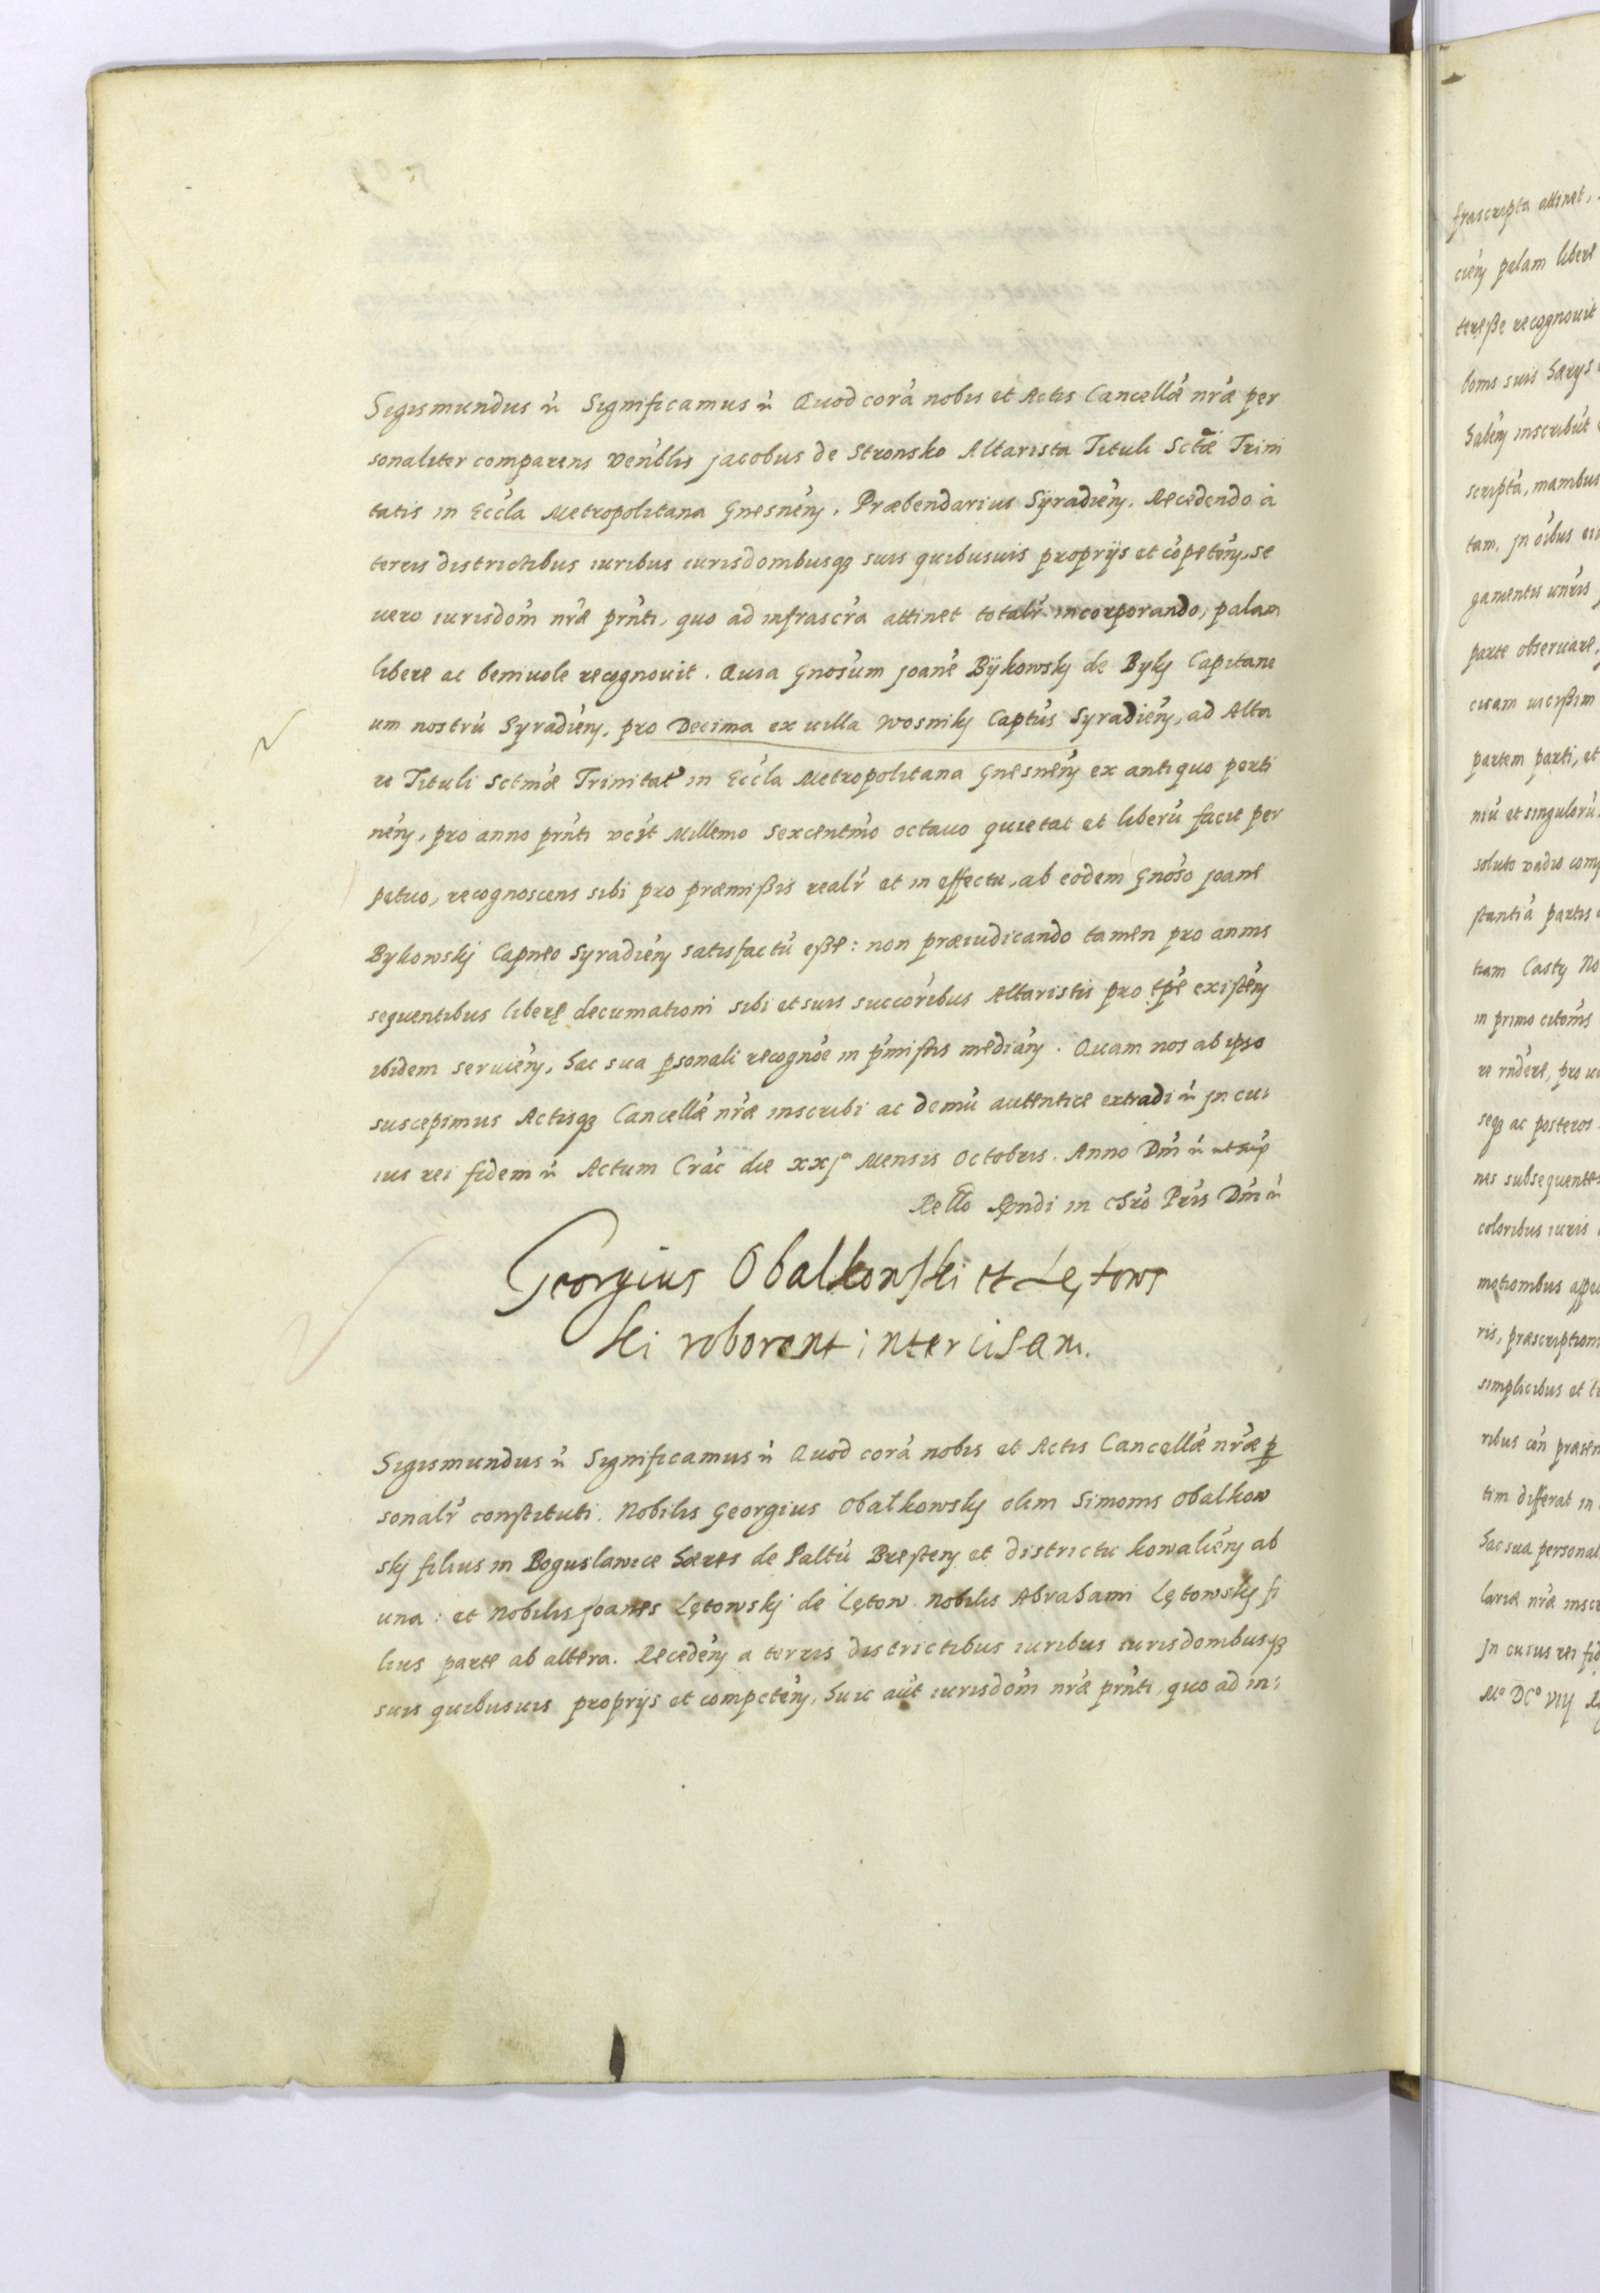 Sigismundus &c Significamus &c Quod corã nobis et Actis Cancellæ nræ per
sonaliter comparens Venblis Jacobus de Stronsko Altarista Tituli Sctæ Trini
tatis in Eccla Metropolitana Gnesnen, Præbendarius Syradien, Recedendo à
terris districtibus iuribus iurisdombusq suis quibusuis proprijs et copeten, se
uero iurisdom nræ prnti, quo ad infrascra attinet totalr incorporando, palam
libere ac beniuole recognouit. Quia Gnosum Joane Bÿkowskj de Bykj Capitane
um nostrũ Syradien, pro Decima ex uilla Wosnikj Captus Syradien, ad Alta
re Tituli Sctmæ Trinitat in Eccla Metropolitana Gnesnen ex antiquo perti
nen, pro anno prnti vczt Millemo Sexcentmo octauo quietat et liberũ facit per
petuo, recognoscens sibi pro præmißis realr et in effectu, ab eodem Gnoso Joane
Bykowskj Capneo Syradien satisfactũ eße: non præiudicando tamen pro annis
sequentibus liberę decimationi sibi et suis succoribus Altaristis pro tpe existen
ibidem seruien, hac sua psonali recognoe in pmissis median. Quam nos ab ipso
suscepimus Actisq Cancellæ nræ inscribi ac demũ autentice extradi &c Jn cui
ius rei fidem &c Actum Crac die xxjª Mensis Octobris. Anno Dni &c ut sup
Rello Rndi in Chro Pris Dni &c
Georgius Obalkowski et Lętows
ki roborant intercisam.
Sigismundus &c Significamus &c Quod corã nobis et Actis Cancellæ nræ p
sonalr constituti. Nobilis Georgius Obałkowskj olim Simonis Obalkow
skj filius in Boguslawice hæres de Paltũ Bresten et districtu kowalien ab
una: et Nobilis Joanes Lętowskj de Lętow Nobilis Abrahami Lętowskj fi
lius parte ab altera. Receden a terris districtibus iuribus iurisdombusq
suis quibusuis proprijs et competen, huic aut iurisdom nræ prnti, quo ad in:
frascripta attinet,
cien palam libere
tereße recognouit
bonis suis
haben inscribut
scripta, manibus
tam. Jn oibus
gamentis
parte obseruare,
cisam
partem parti, et
niũ et singulorũ
soluto uadio
stantiã partis
tiam
in primo
re rndere, pro
seq ac posteros
nes subsequentes
coloribus iuris
motionibus
ris, præscriptioni
simplicibus et
ribus
tim differat in
hac sua personal
lariæ nræ
Jn cuius rei
Mº DCº VIIJ